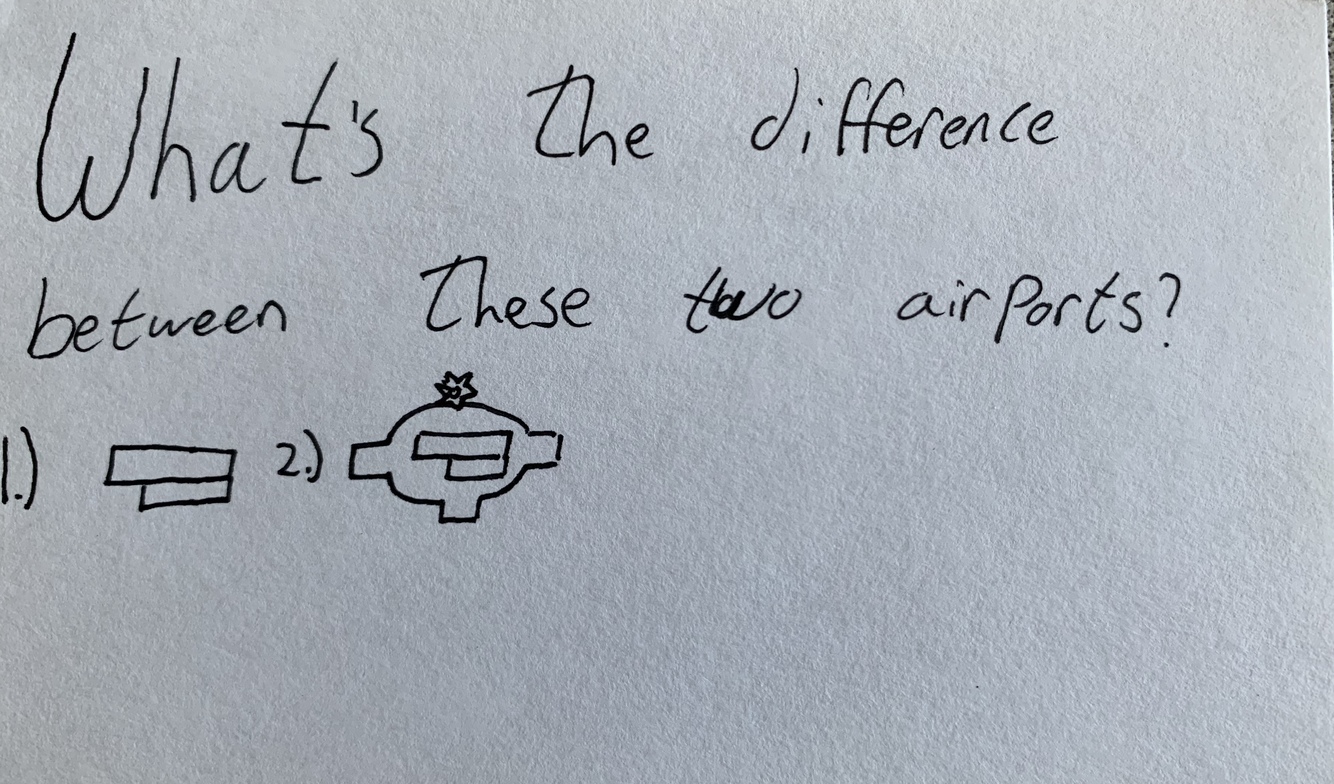 What's the difference
between these two airports?
1.) 2.)